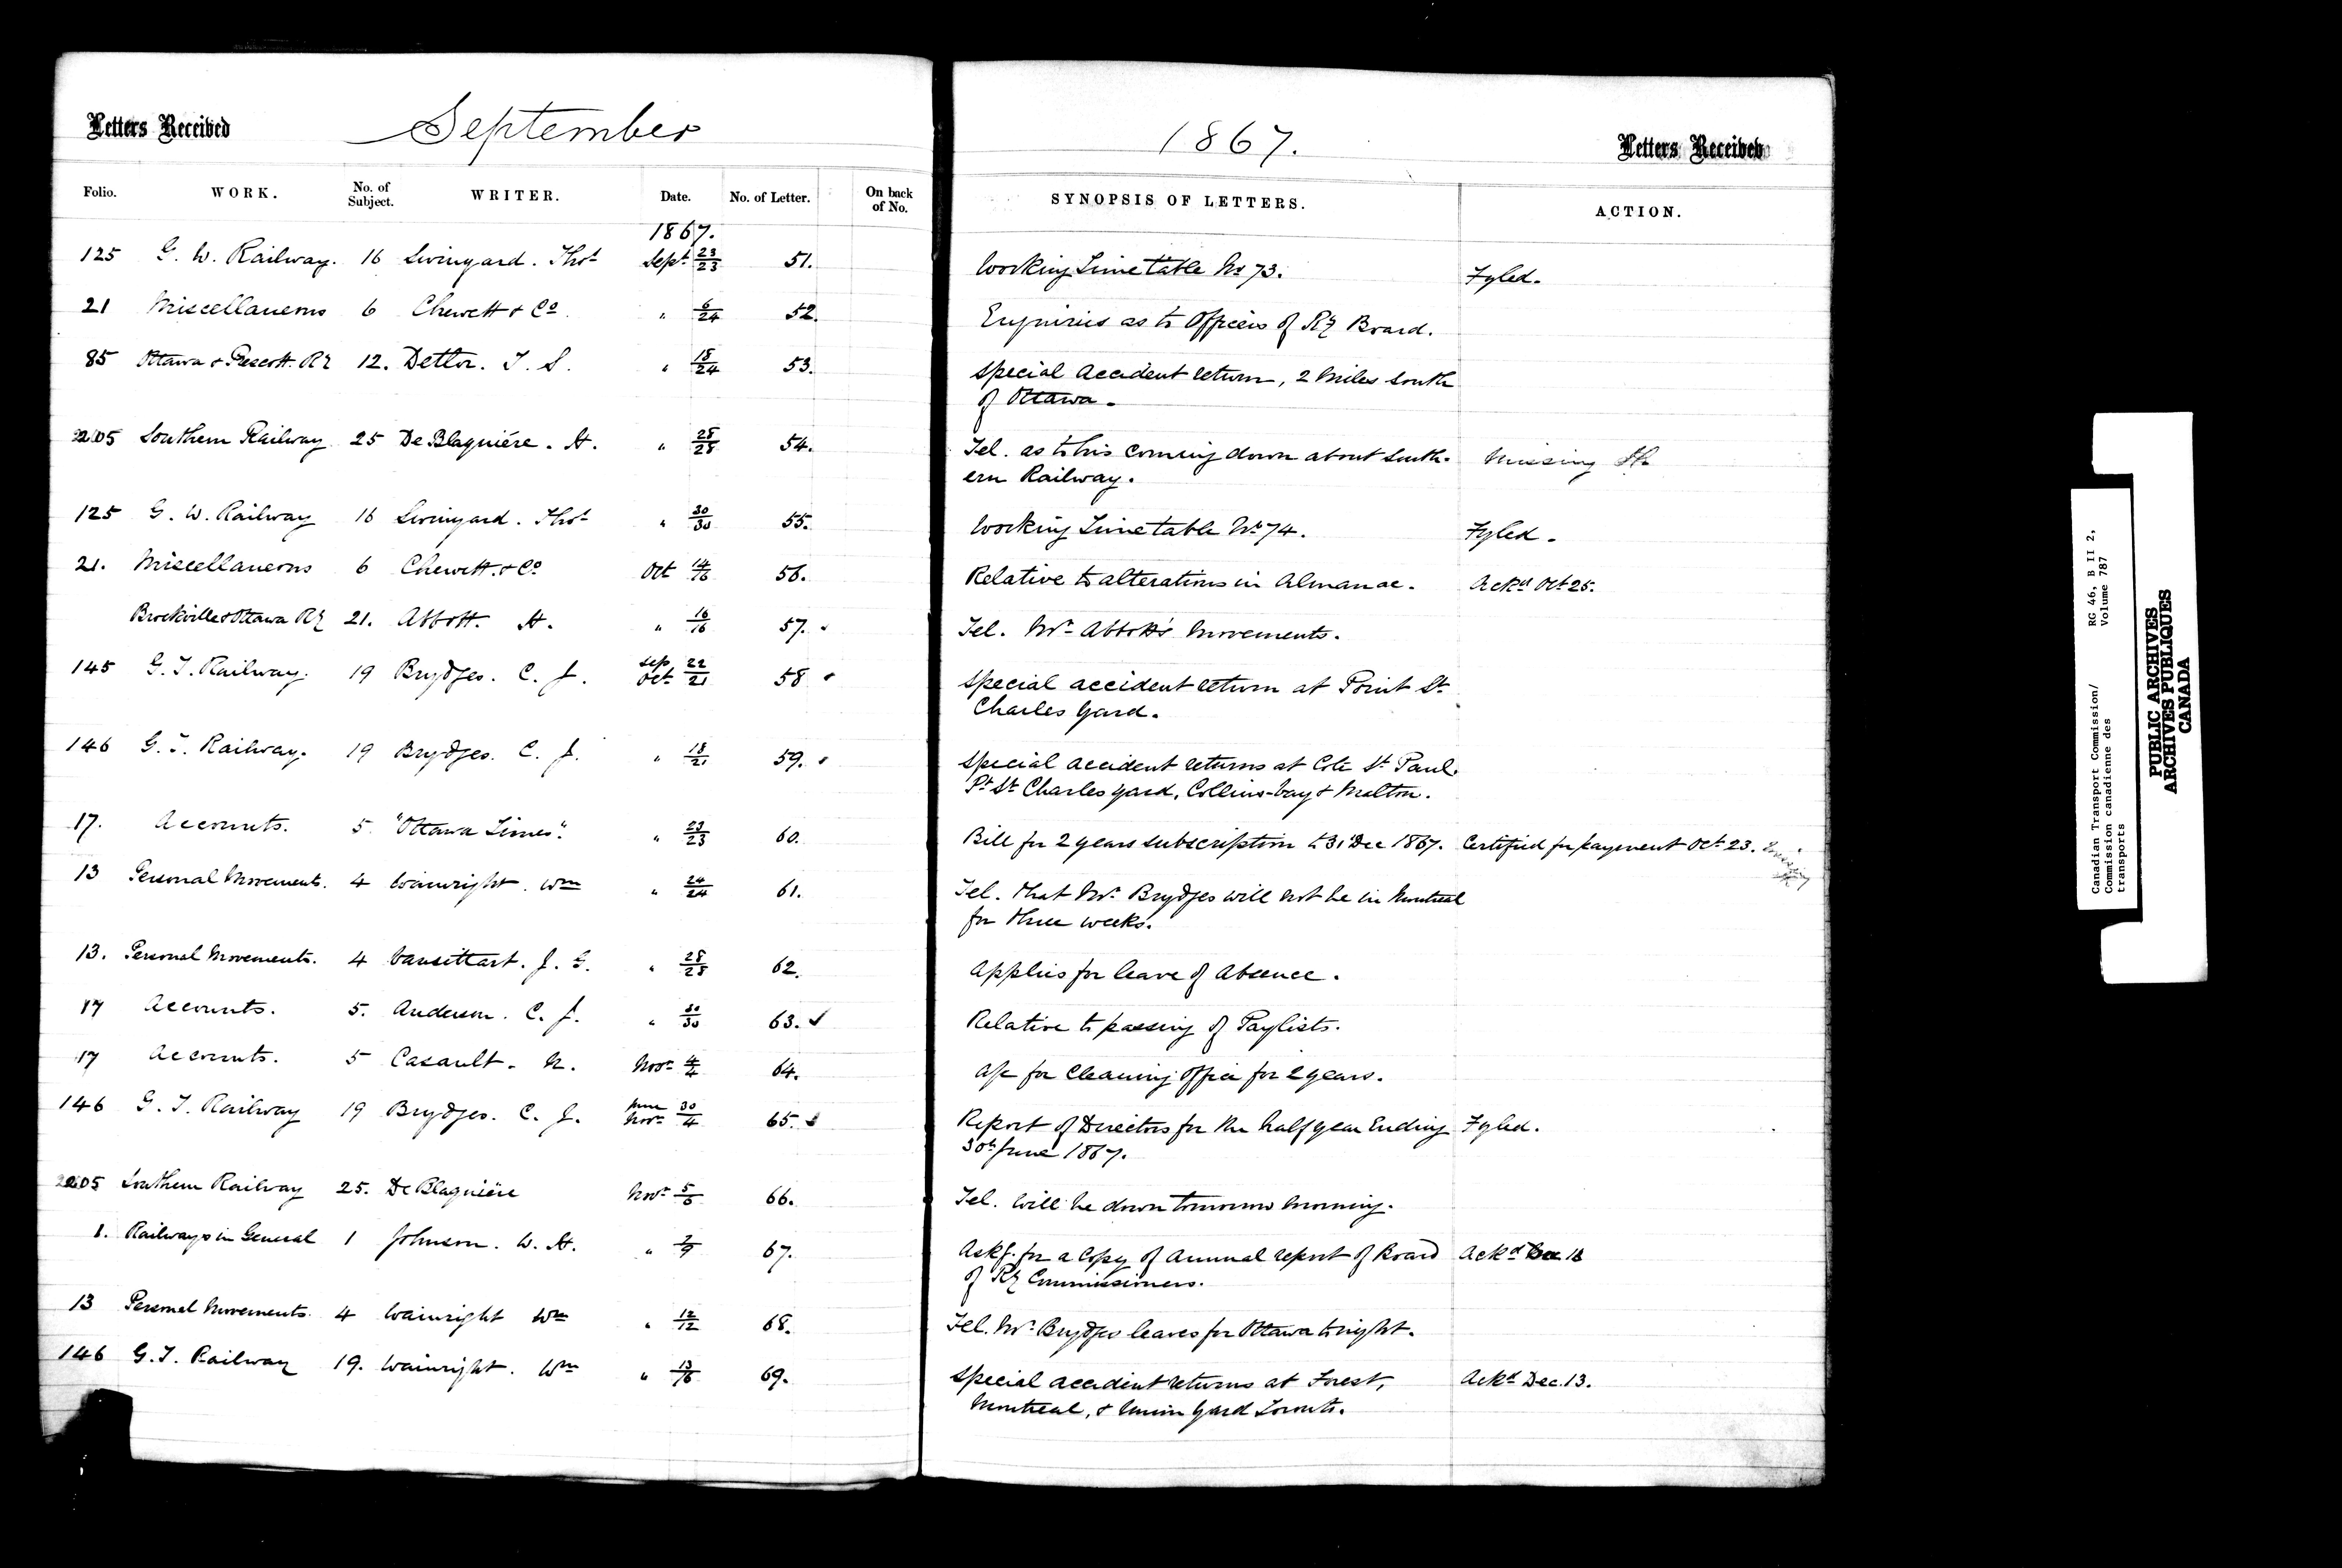 Letters Received September 1867. Letters Received
Folio. WORK. No. of Subject. WRITER. Date. No. of Letter. On back of No. SYNOPSIS OF LETTERS. ACTION.
1867.
125 G. W. Railway. 16 Livingard. Thos Sept 23/23 51. Working Time table No 73. Fyled.
21 Miscellaneous 6 Chewett & Co. " 6/24 52. Enquiries as to Officers of Ry Board.
85 Ottawa & Prescott. Ry 12. Detlor. T. S. " 18/24 53. Special Accident return, 2 miles South
of Ottawa.
205 Southern Railway 25 De Blaquiére. H. " 28/28 54. Tel. as to his coming down about South- Missing
ern Railway.
125 G. W. Railway 16 Livingard. Thos " 30/30 55. Working Time table No 74. Fyled.
21. Miscellaneous 6 Chewett. & Co Oct 14/16 56. Relative to alterations in Almanac. Ackd Oct 25.
Brockville & Ottawa Ry 21. Abbott. H. " 16/16 57. Tel. Mr Abbott's Movements.
145 G. T. Railway. 19 Brydges. C. J. Sep 22 Oct 21 58 Special accident return at Point St
Charles Yard.
146 G. T. Railway. 19 Brydges. C. J. " 18/21 59. Special accident returns at Cote St Paul.
Pt St Charles yard, Collins-bay & Malton.
17. Accounts. 5 "Ottawa Times". " 23/23 60. Bill for 2 years subscription to 31 Dec 1867. Certified for payment Oct 23. Missing
13 Personal Movements. 4 Wainwright. Wm " 24/24 61. Tel. that Mr Brydges will not be in Montreal
for three weeks.
13. Personal Movements. 4 Vansittart. J. G. " 28/28 62. Applies for leave of Absence.
17 Accounts. 5. Anderson. C. J. " 30/30 63. Relative to passing of Paylists.
17 Accounts. 5 Casault. N. Novr 4/4 64. A/c for Cleaning Office for 2 years.
146 G. T. Railway 19 Brydges. C. J. June 30 Novr 4 65. Report of Directors for the half year Ending Fyled.
30th June 1867.
205 Southern Railway 25. De Blaquiére Novr 5/5 66. Tel. Will be down tomorrow morning.
1. Railways in General 1 Johnson. W. H. " 7/9 67. Askg. for a Copy of Annual report of Board Ackd Dec 18
of Ry Commissioners.
13 Personal Movements. 4 Wainwright Wm " 12/12 68. Tel. Mr Brydges leaves for Ottawa tonight.
146 G. T. Railway 19. Wainwright. Wm " 13/16 69. Special accident returns at Forest, Ackd Dec. 13.
Montreal, & Union Yard Toronto.
Canadian Transport Commission/ RG 46, B II 2,
Commission canadienne des Volume 787
transports
PUBLIC ARCHIVES
ARCHIVES PUBLIQUES
CANADA